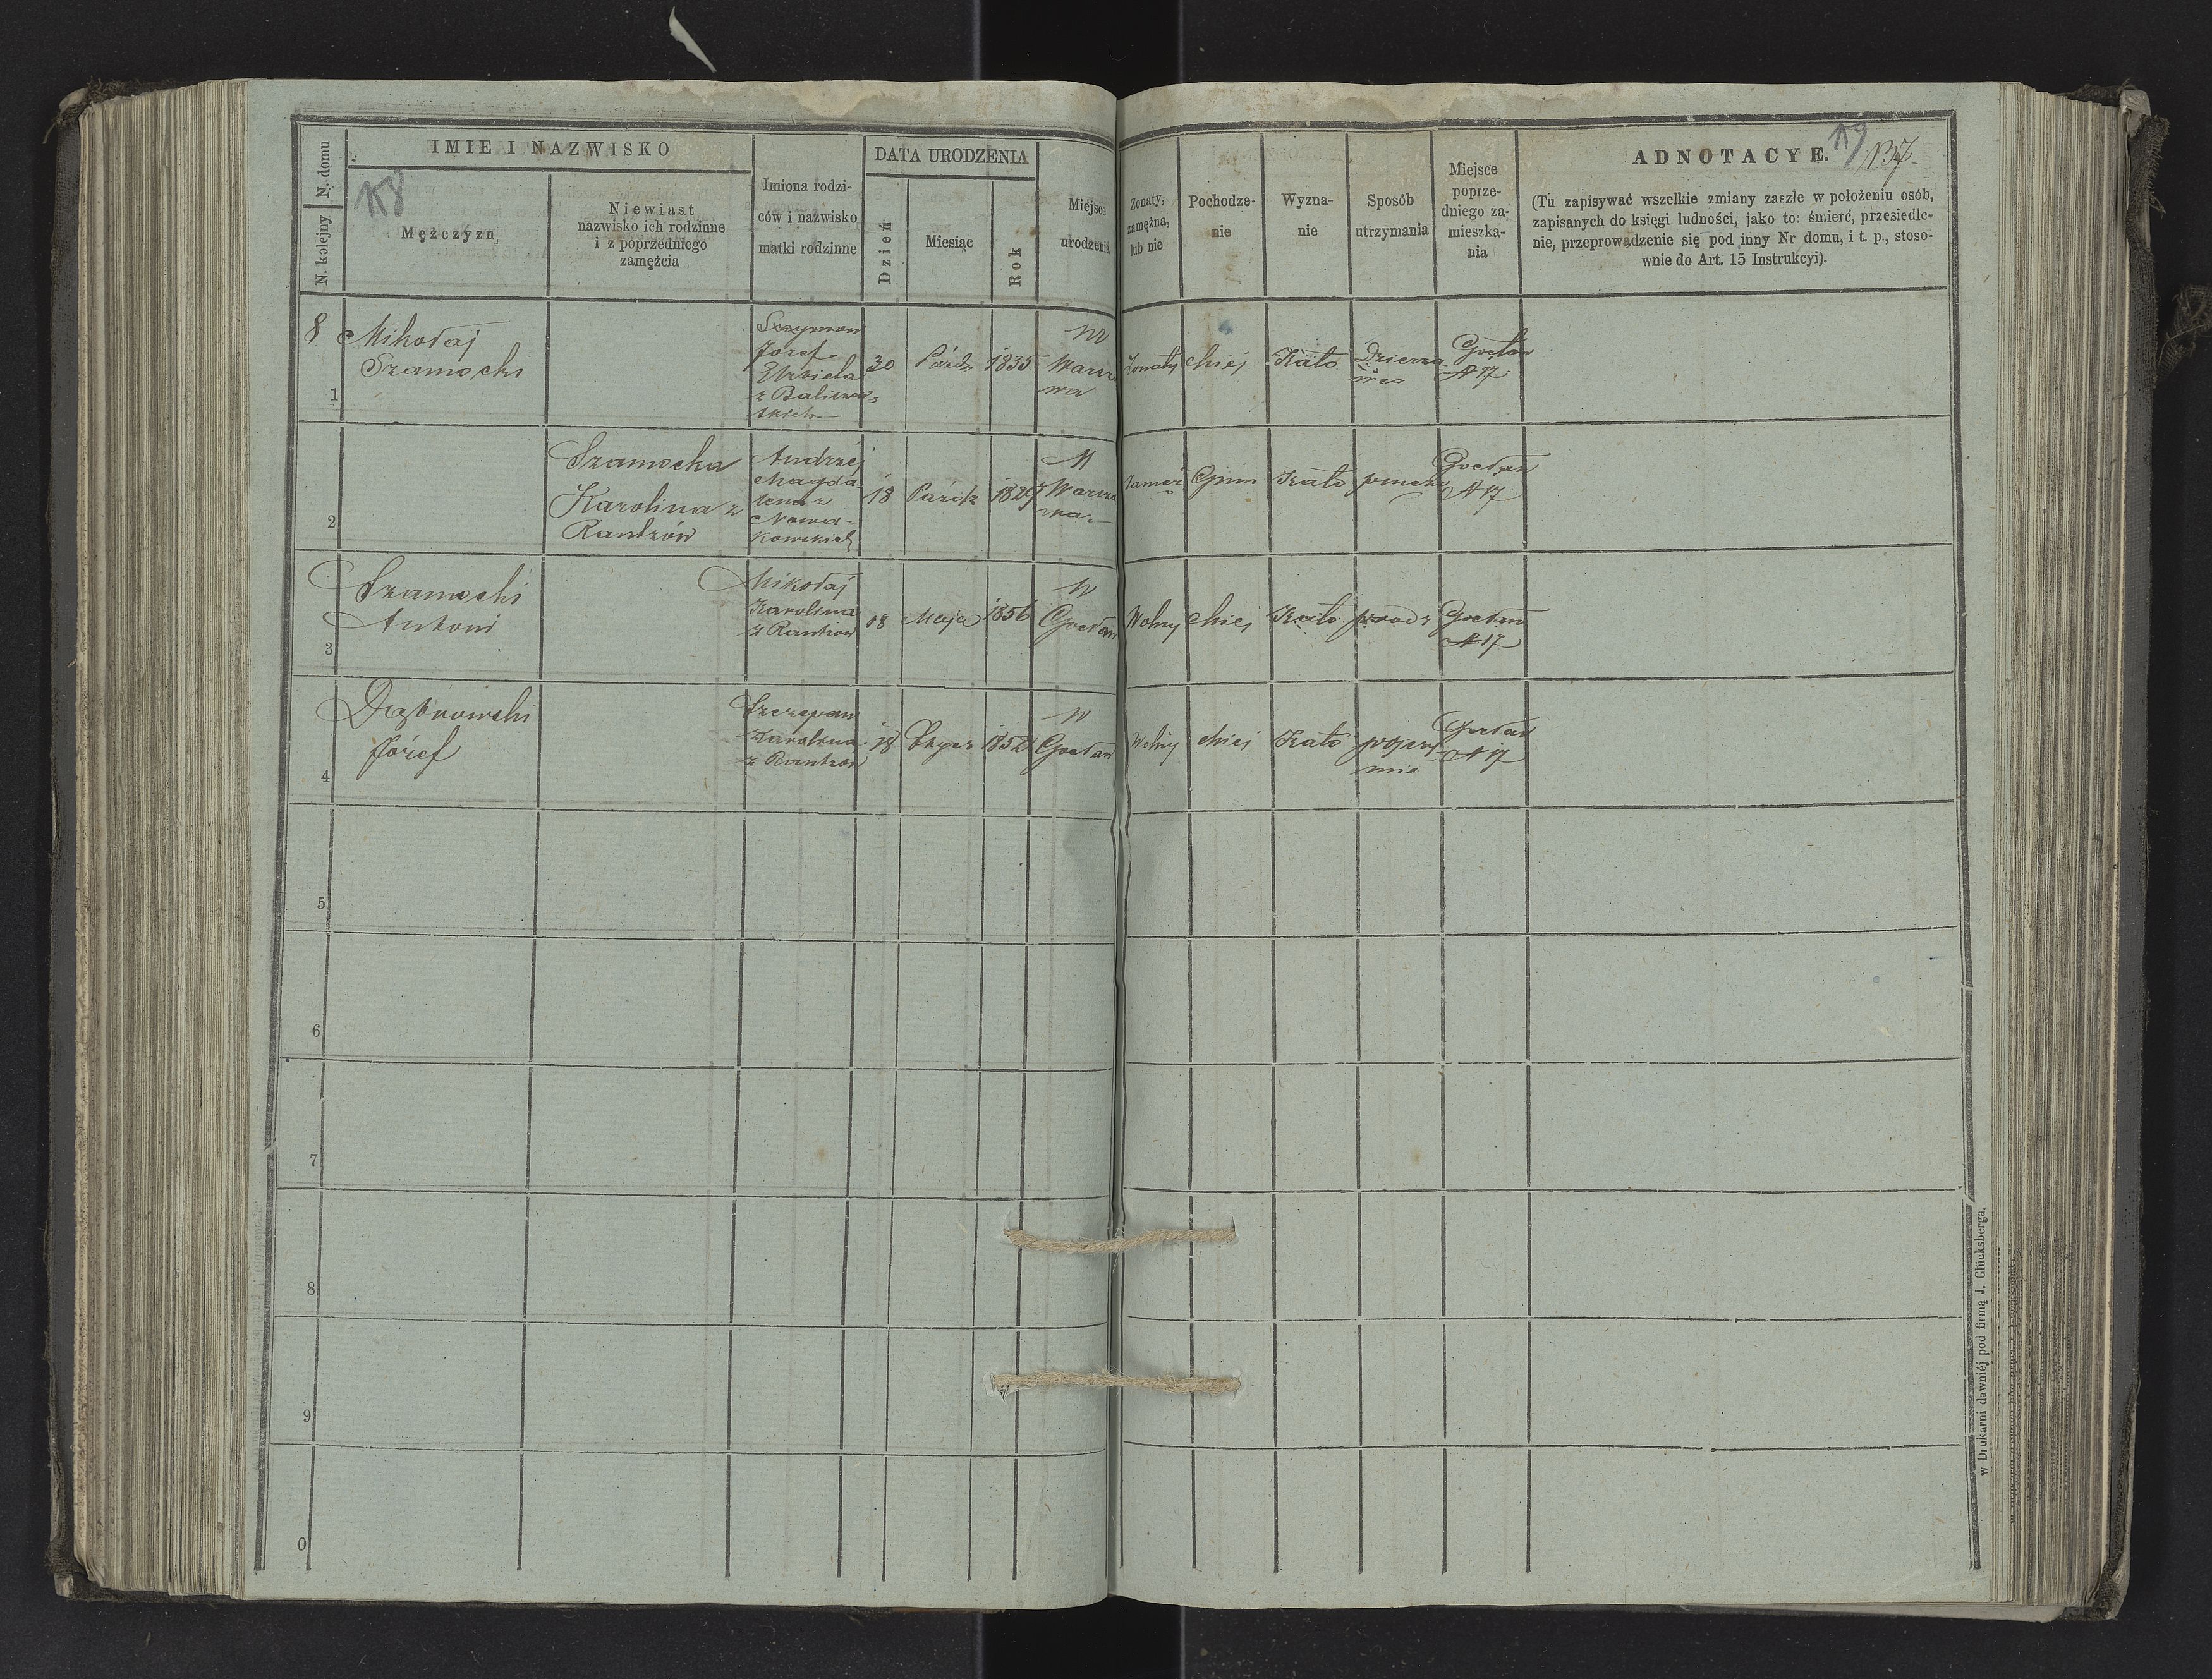 N. domu
N. kolejny
IMIE I NAZWISKO
18
Mężczyzn
Niewiast
nazwisko ich rodzinne
i z poprzedniego
zamężcia
Imiona rodzi-
ców i nazwisko
matki rodzinne
DATA URODZENIA
Dzień
Miesiąc
Rok
Miejsce
urodzenia
Żonaty,
zamężna,
lub nie
Pochodze-
nie
Wyzna-
nie
Sposób
utrzymania
Miejsce
poprze-
dniego za-
mieszka-
nia
ADNOTACYE.
19
137
(Tu zapisywać wszelkie zmiany zaszłe w położeniu osób,
zapisanych do księgi ludności, jako to: śmierć, przesiedle-
nie, przeprowadzenie się pod inny Nr domu, i t. p., stoso-
wnie do Art. 15 Instrukcyi).
8
1
Mikołaj
Szamocki
Szymon
Józef
Elżbieta
30
Paźdz
1835
w
Warsza
wa
Żonaty
chiej
Kato
Dzierża
wca
Gocław
N 17
2
Szamocka
Karolina z
Rantzów
Andrzej
Magda
lena z
Nowa-
kowskich
18
Paźdz
1829
w
Warsza
wa
Zamęż
Gmin
Kato
Gocław
N 17
3
Szamocki
Antoni
Mikołaj
Karolina
z Rantzów
18
Maja
1856
w
Gocław
Wolny
chiej
Kato
Gocław
N 17
4
Dąbrowski
Józef
Szczepan
Karolina
z Rantzów
18
1852
w
Gocław
Wolny
chiej
Kato
Gocław
N 17
5
6
7
8
9
0
w Drukarni dawniéj pod firmą J. Glücksberga.